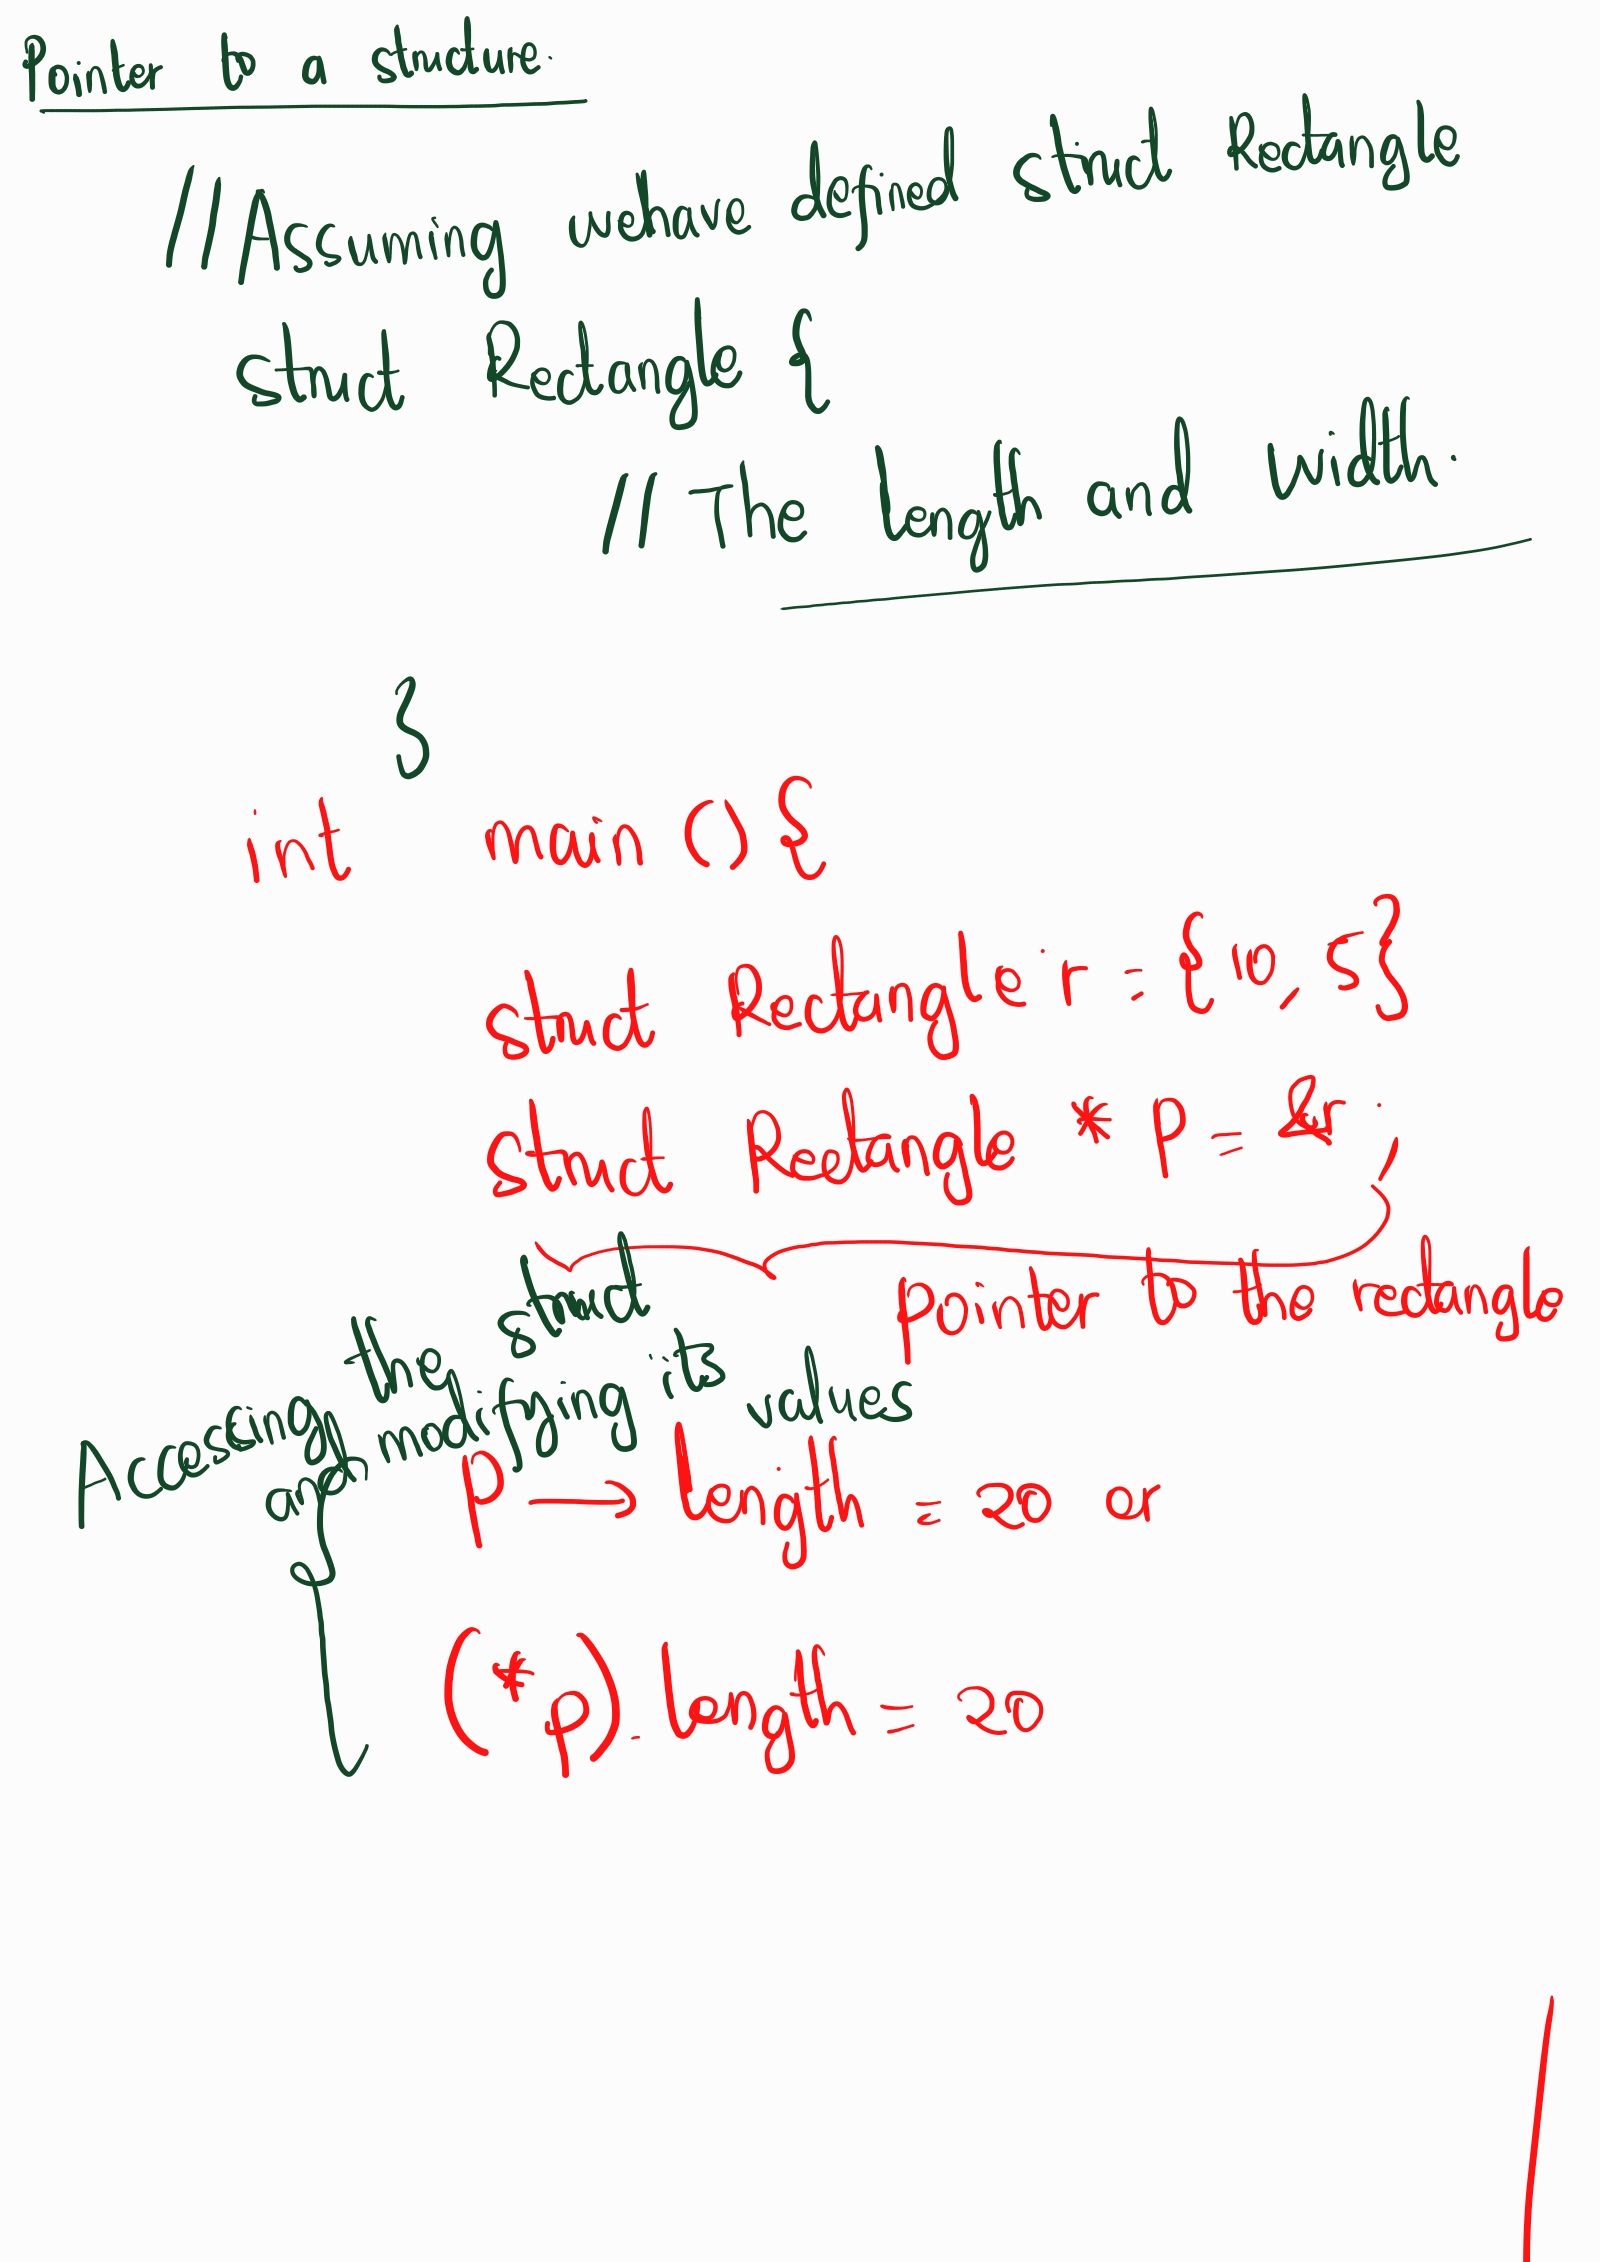 Pointer to a structure.
// Assuming we have defined struct Rectangle
struct Rectangle {
// The length and width.
}
int main () {
struct Rectangle r = {10, 5}
struct Rectangle * p = &r ;
pointer to the rectangle
Accessing the struct
and modifying its values
p → length = 20 or
(*p). length = 20